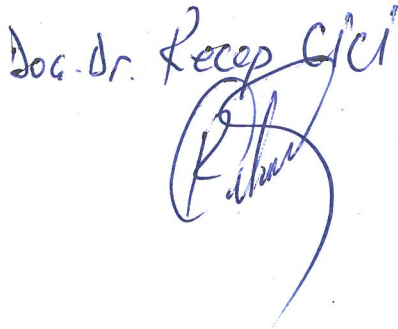 Doç. Dr. Recep Cici